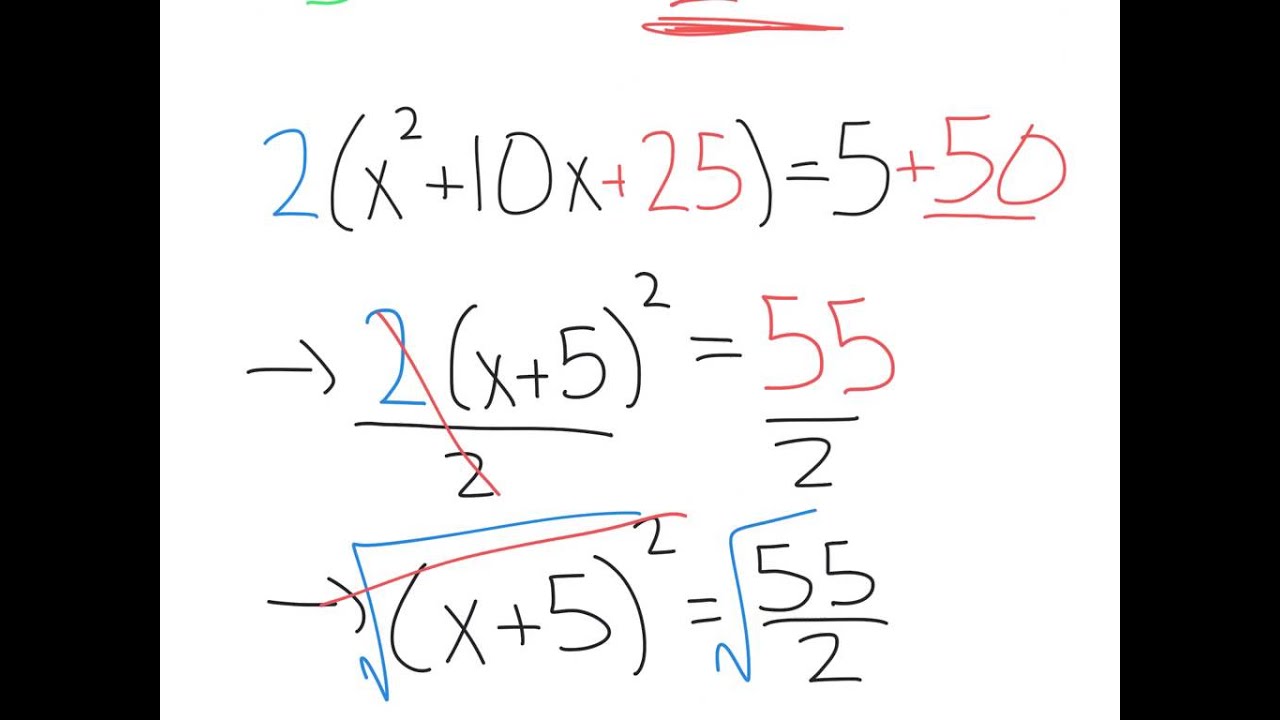 2(x²+10x+25)=5+50
→ 2(x+5)²/2 = 55/2
→ √(x+5)² = √55/2